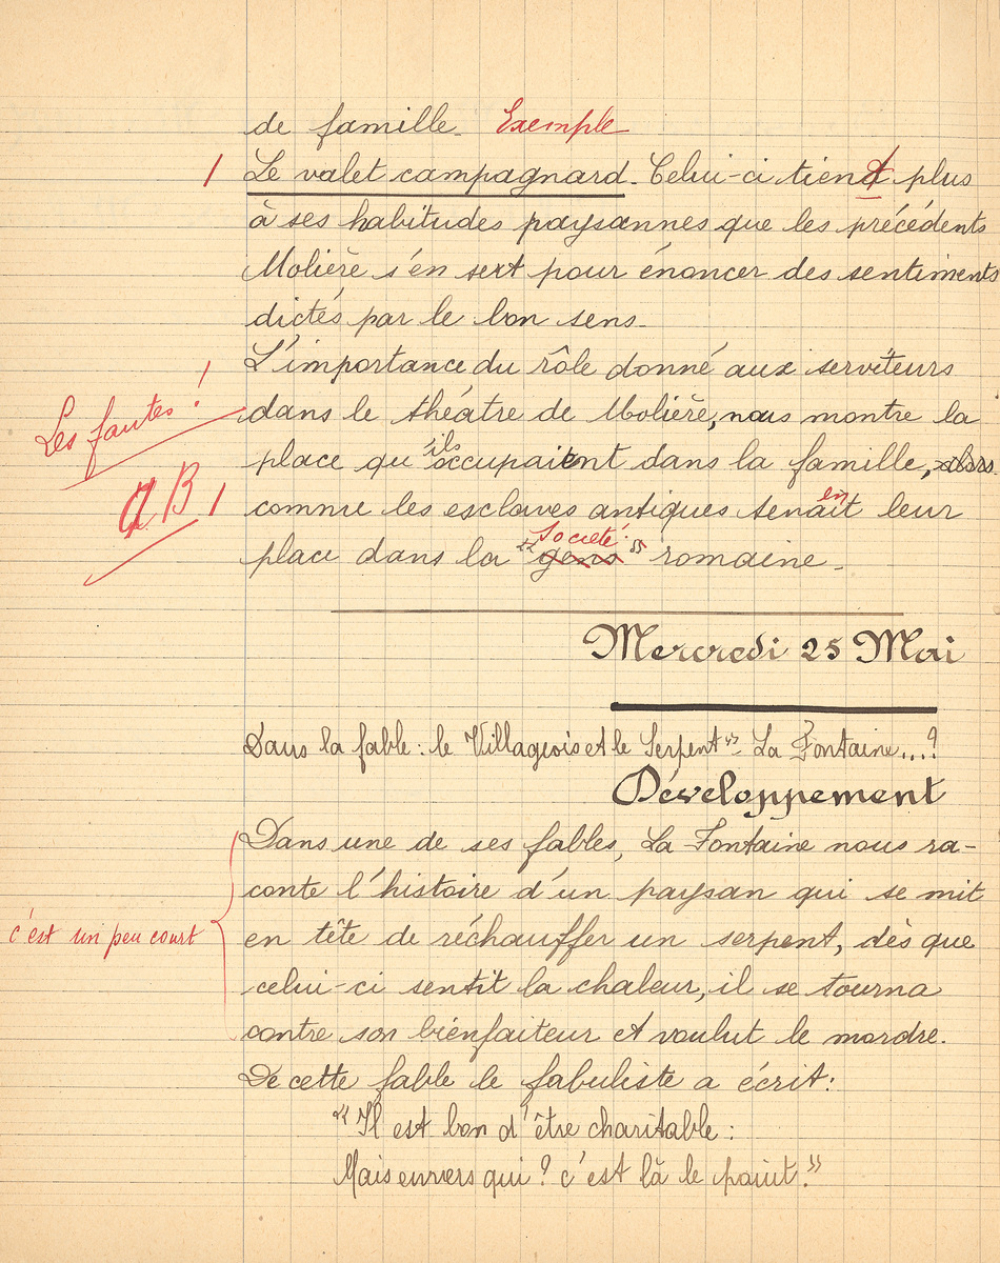 de famille. Exemple
Le valet campagnard. Celui-ci tient plus
à ses habitudes paysannes que les précédents
Molière s'en sert pour énoncer des sentiments
dictés par le bon sens.
L'importance du rôle donné aux serviteurs
Les fautes !
dans le théâtre de Molière, nous montre la
ils
place qu'occupaient dans la famille, alors
AB
en
comme les esclaves antiques tenait leur
Société
place dans la "gens" romaine.
Mercredi 25 Mai
Dans la fable : le Villageois et le Serpent" La Fontaine...?
Développement
Dans une de ses fables, La Fontaine nous ra-
conte l'histoire d'un paysan qui se mit
c'est un peu court
en tête de réchauffer un serpent, dès que
celui-ci sentit la chaleur, il se tourna
contre son bienfaiteur et voulut le mordre.
De cette fable le fabuliste a écrit :
"Il est bon d'être charitable :
Mais envers qui ? c'est là le point."